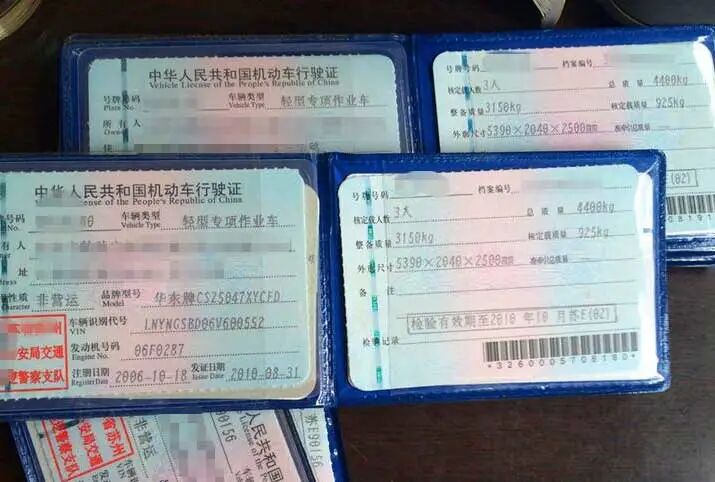 中华人民共和国机动车行驶证
Vehicle License of the People's Republic of China
号牌号码
Plate No.
车辆类型
Vehicle Type
轻型专项作业车
所有人
住
号牌号码
档案编号
核定载人数 3人
总质量 4400kg
整备质量 3150kg
核定载质量 925kg
外廓尺寸 5390×2040×2500
中华人民共和国机动车行驶证
cense of the People's Republic of China
号码
车辆类型
Vehicle Type
轻型专项作业车
有人
址
性质
Character
非营运
品牌型号
Model
华东牌CSZ5047XYCFD
车辆识别代号
VIN
LNYNGSBD06V600552
发动机号码
Engine No.
06F0287
注册日期
Register Date
2006-10-18
发证日期
Issue Date
2010-08-31
安局交通
警察支队
号牌号码
档案编号
核定载人数 3人
总质量 4400kg
整备质量 3150kg
核定载质量 925kg
外廓尺寸 5390×2040×2500
备注
检验记录
检验有效期至2010年10月苏E(02)
*3260005708180*
省苏州
安局交通
警察支队
非营运
车辆
VIN
人民共和国
License of the
of the Peo
苏E90156